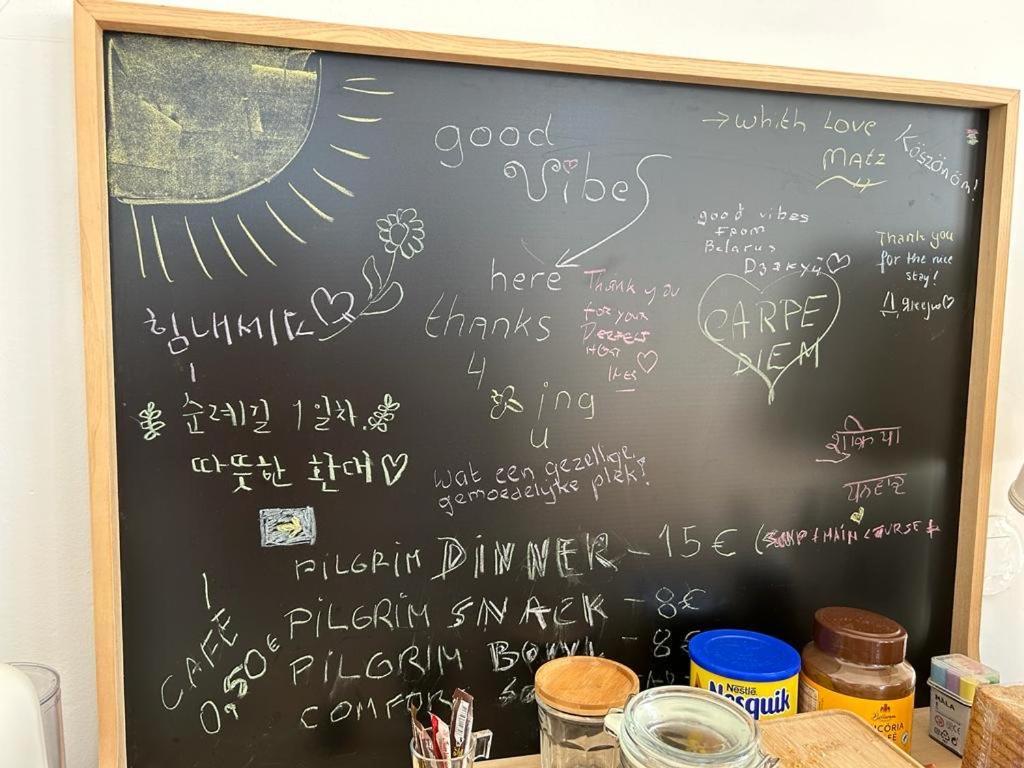 good
Vibes
here
thanks
4
ing
u
→ whith Love
Matz
Köszönöm!
good vibes
From
Belarus
Дзякуй
CARPE
DIEM
Thank you
for the nice
stay!
Thank you
for your
HOST
INES
힘내세요
순례길 1일차
따뜻한 환대
wat een gezellige,
gemoedelijke plek!
शुक्रिया
PILGRIM DINNER - 15€ (SOUP + MAIN COURSE +
PILGRIM SNACK - 8€
PILGRIM BOWL - 8€
COMFORT
CAFE
0,50€
Nestlé
Nesquik